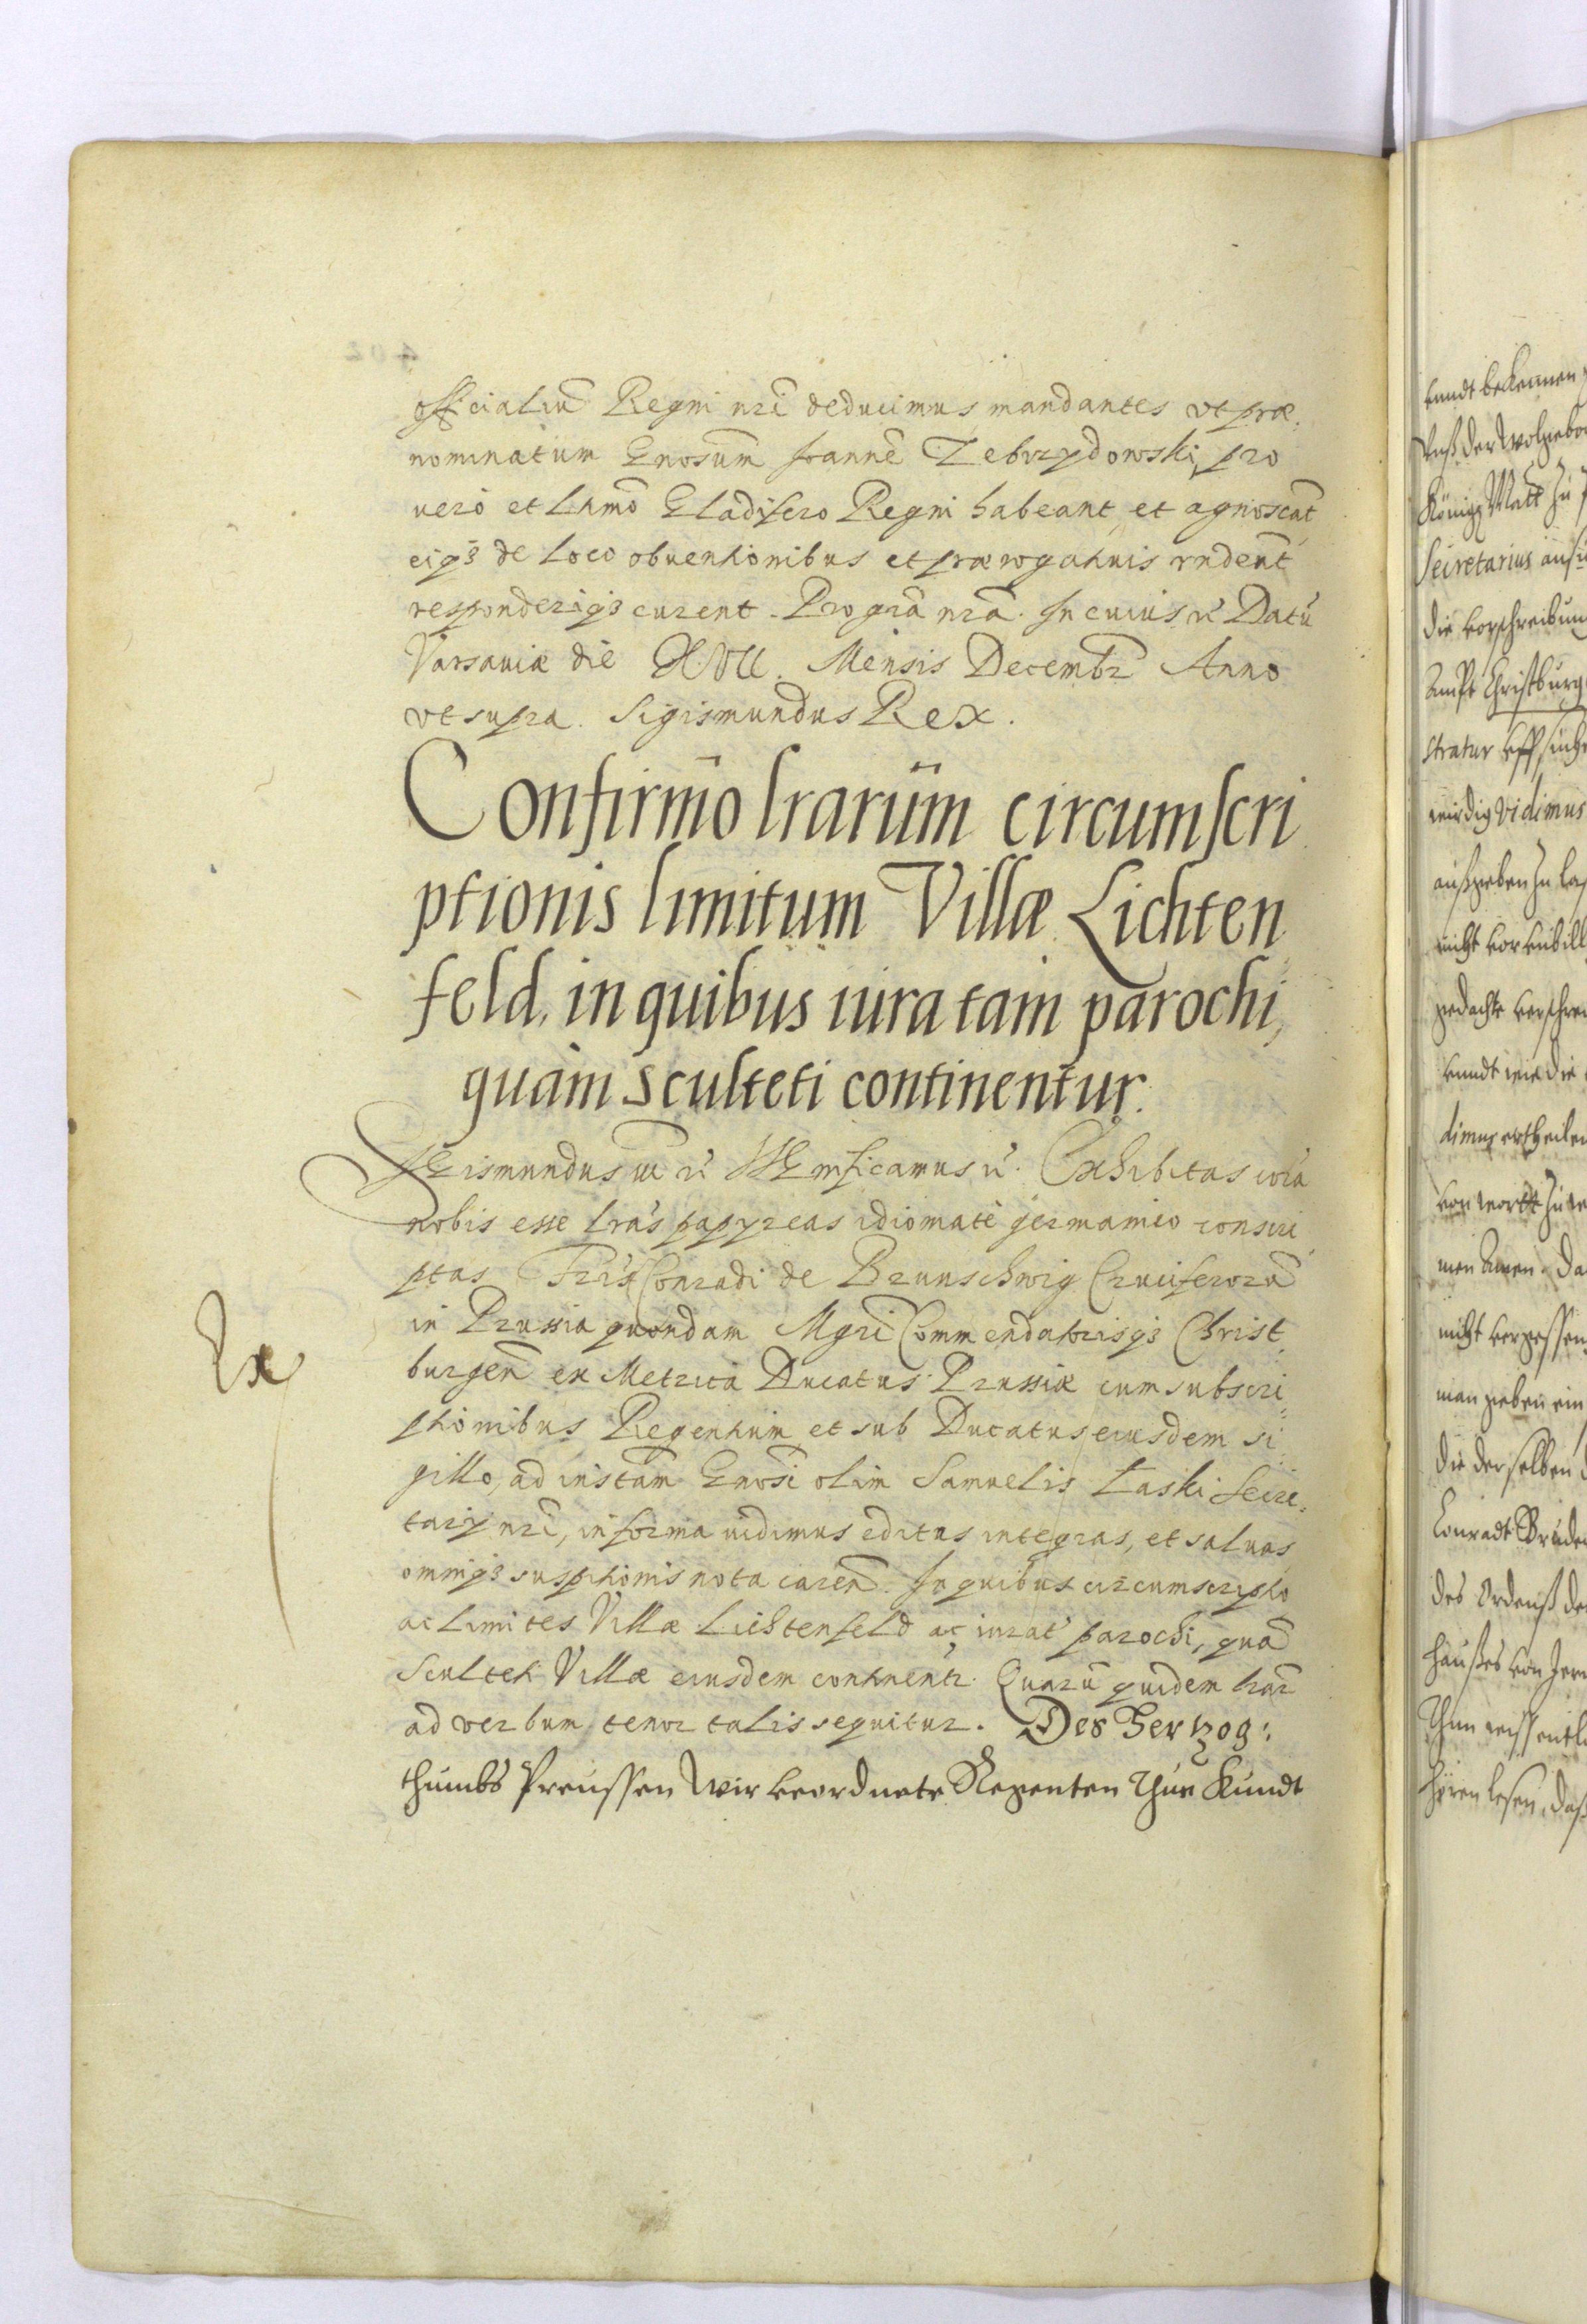 officialiũ Regni nr̃i deducimus mandantes vt præ,
nominatum Gnosum̃ Joannẽ Zebrzydowski, pro
uero et l̃timo Gladifero Regni habeant, et agnoscãt
eiq3 de loco obuentionibus et prærogatiuis rñdent
responderiq3 curent. Pro grã nrã. In cuius rẽ Datũ
Varsauiæ die XVII. Mensis Decembr̃ Anno
vt supra. Sigismundus Rex.
Confirm̃o lrarũm circumscri
ptionis limitum Villæ Lichten
feld, in quibus iura tam parochi,
quàm sculteti continentur.
Sigismundus III rẽ Significamus rẽ. Exhibitas corã
nobis esse lrãs papyreas idiomate germanico conscri
ptas Fr̃is Conradi de Brunschwig Cruciferorũ
in Prussia quondam Mgr̃i Commendatorisq3 Christ,
burgen̄ ex Metrica Ducatus Prussiæ cum subscri
ptionibus Regentium et sub Ducatus eiusdem si
gillo, ad instam̃ Gnosi olim Samuelis Łaski Secre,
tarij nr̃i, in forma uidimus editas integras, et saluas
omniq3 suspitionis nota caren̄. In quibus circumscriptio
ac limites Villæ Lichtenfeld ac iura tã parochi, quã
Sculteti Villæ eiusdem continentr. Quarũ quidem lrar̃
ad verbum tenor talis sequitur. Des Hertzog:
thumbs Preussen Wir verordnete Regenten Thun Kundt
kundt bekennen
Königg Matt zu
Secretarius
die vorschreibung
Ampt Christburg
wirdig vidimus
außgeben zu las
gedachte verschrei
kundt wie die
dimus ertheilen
von wortt zu
men Amen. Da
nicht vergessen
man geben ein
die derselben
Conradt Bruder
des Ordenß de
haußes von Jeru
Thun wissentl
hören lesen, daß